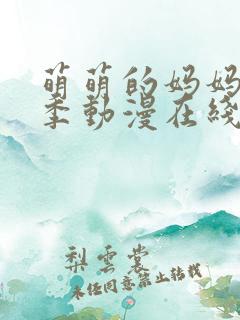 萌萌的妈妈
季動漫在綫
梨雲裳
未经同意禁止转载